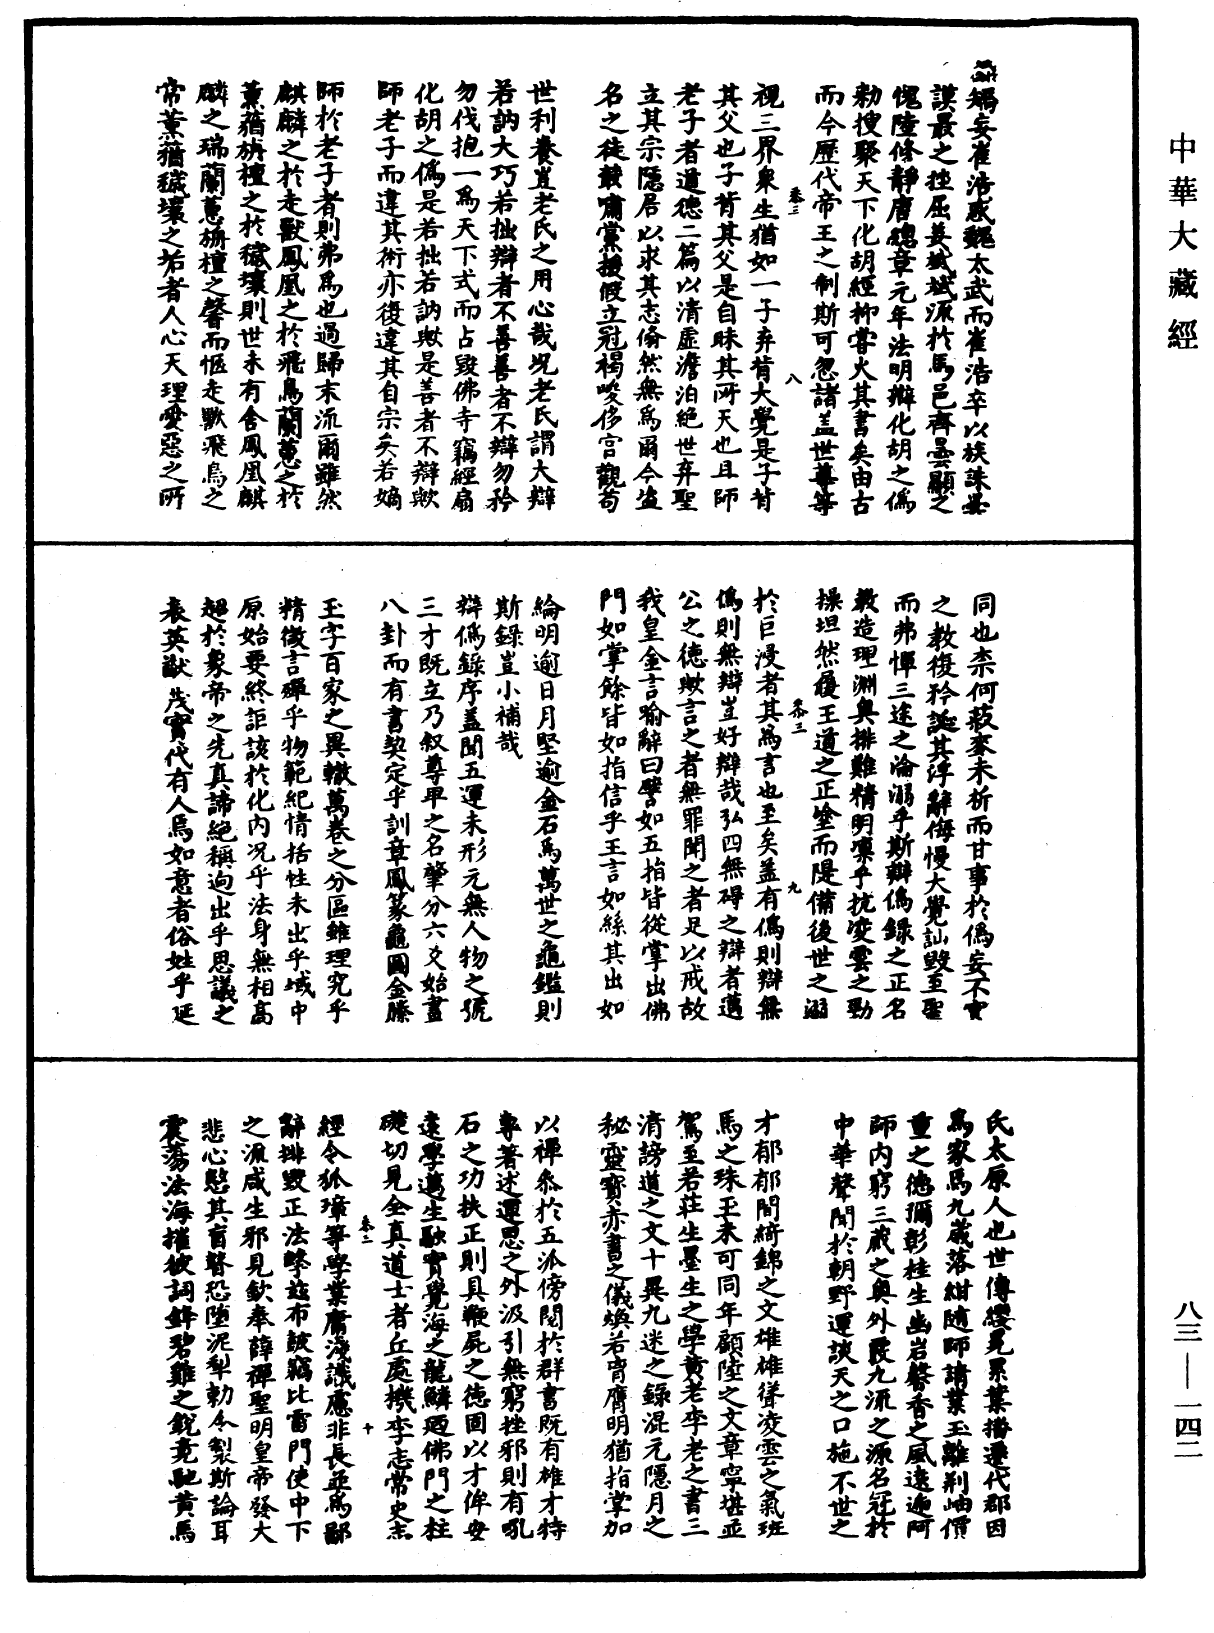 中華大藏經
謀最之挫屈姜斌斌流於馬邑齊曇顯之
愧陸修靜唐總章元年法明辯化胡之偽
勑搜聚天下化胡經抑嘗火其書矣由古
而今歷代帝王之制斯可忽諸蓋世尊等
卷三 八
視三界衆生猶如一子弃背大覺是子背
其父也子背其父是自昧其所天也且師
老子者道德二篇以清虛澹泊絕世弃聖
立其宗隱居以求其志翛然無為爾今盜
名之徒鼓嘯黨援假立冠褐唆侈宮觀苟
世利養豈老氏之用心哉况老氏謂大辯
若訥大巧若拙辯者不善善者不辯勿矜
勿伐抱一為天下式而占毀佛寺竊經扇
化胡之偽是若拙若訥歟是善者不辯歟
師老子而違其術亦復違其自宗矣若嫡
師於老子者則弗為也過歸末流爾雖然
麒麟之於走獸鳳凰之於飛鳥蘭蕙之於
薰蕕旃檀之於穢壤則世未有舍鳳凰麒
麟之瑞蘭蕙旃檀之馨而愜走獸飛鳥之
常薰蕕穢壤之垢者人心天理愛惡之所
同也柰何菽麥未析而甘事於偽妄不實
之教復矜誕其浮辭侮慢大覺訕毀至聖
而弗憚三途之淪溺乎斯辯偽錄之正名
教造理淵奧排難精明凜乎抗凌雲之勁
操坦然履王道之正塗而隄備後世之溺
卷三 九
於巨浸者其為言也至矣蓋有偽則辯無
偽則無辯豈好辯哉弘四無碍之辯者邁
公之德歟言之者無罪聞之者足以戒故
我皇金言喻辭曰譬如五指皆從掌出佛
門如掌餘皆如指信乎王言如絲其出如
綸明逾日月堅逾金石為萬世之龜鑑則
斯錄豈小補哉
辯偽錄序蓋聞五運未形元無人物之號
三才既立乃叙尊卑之名肇分六爻始畫
八卦而有書契定乎訓章鳳篆龜圖金縢
玉字百家之異轍萬卷之分區雖理究乎
精微言殫乎物範紀情括性未出乎域中
原始要終詎該於化內况乎法身無相高
超於象帝之先真諦絕稱逈出乎思議之
表英猷茂實代有人焉如意者俗姓乎延
氏太原人也世傳纓冕累葉播遷代郡因
為家焉九歲落紺隨師請業玉離荆岫價
重之德彌彰桂生幽岩馨香之風遠遞阿
師內窮三藏之奧外覈九流之源名冠於
中華聲聞於朝野運談天之口施不世之
才郁郁間綺錦之文雄雄聳凌雲之氣班
馬之珠玉未可同年顧陸之文章寧堪並
駕至若莊生墨生之學黃老李老之書三
清謗道之文十異九迷之錄混元隱月之
秘靈寶赤書之儀煥若胷膺明猶指掌加
以禪叅於五派傍閱於群書既有雄才特
專著述運思之外汲引無窮挫邪則有吼
石之功扶正則具鞭屍之德固以才侔安
遠學邁生融實覺海之龍鱗廼佛門之柱
礎切見全真道士者丘處機李志常史志
卷二 十
經令狐璋等學業庸淺識慮非長並為鄙
辭排毀正法擊茲布皷竊比雷門使中下
之流咸生邪見欽奉薛禪聖明皇帝發大
悲心愍其盲瞽恐墮泥犁勅令製斯論耳
震蕩法海摧彼詞鋒碧雞之銳竟馳黃馬
八三—一四二